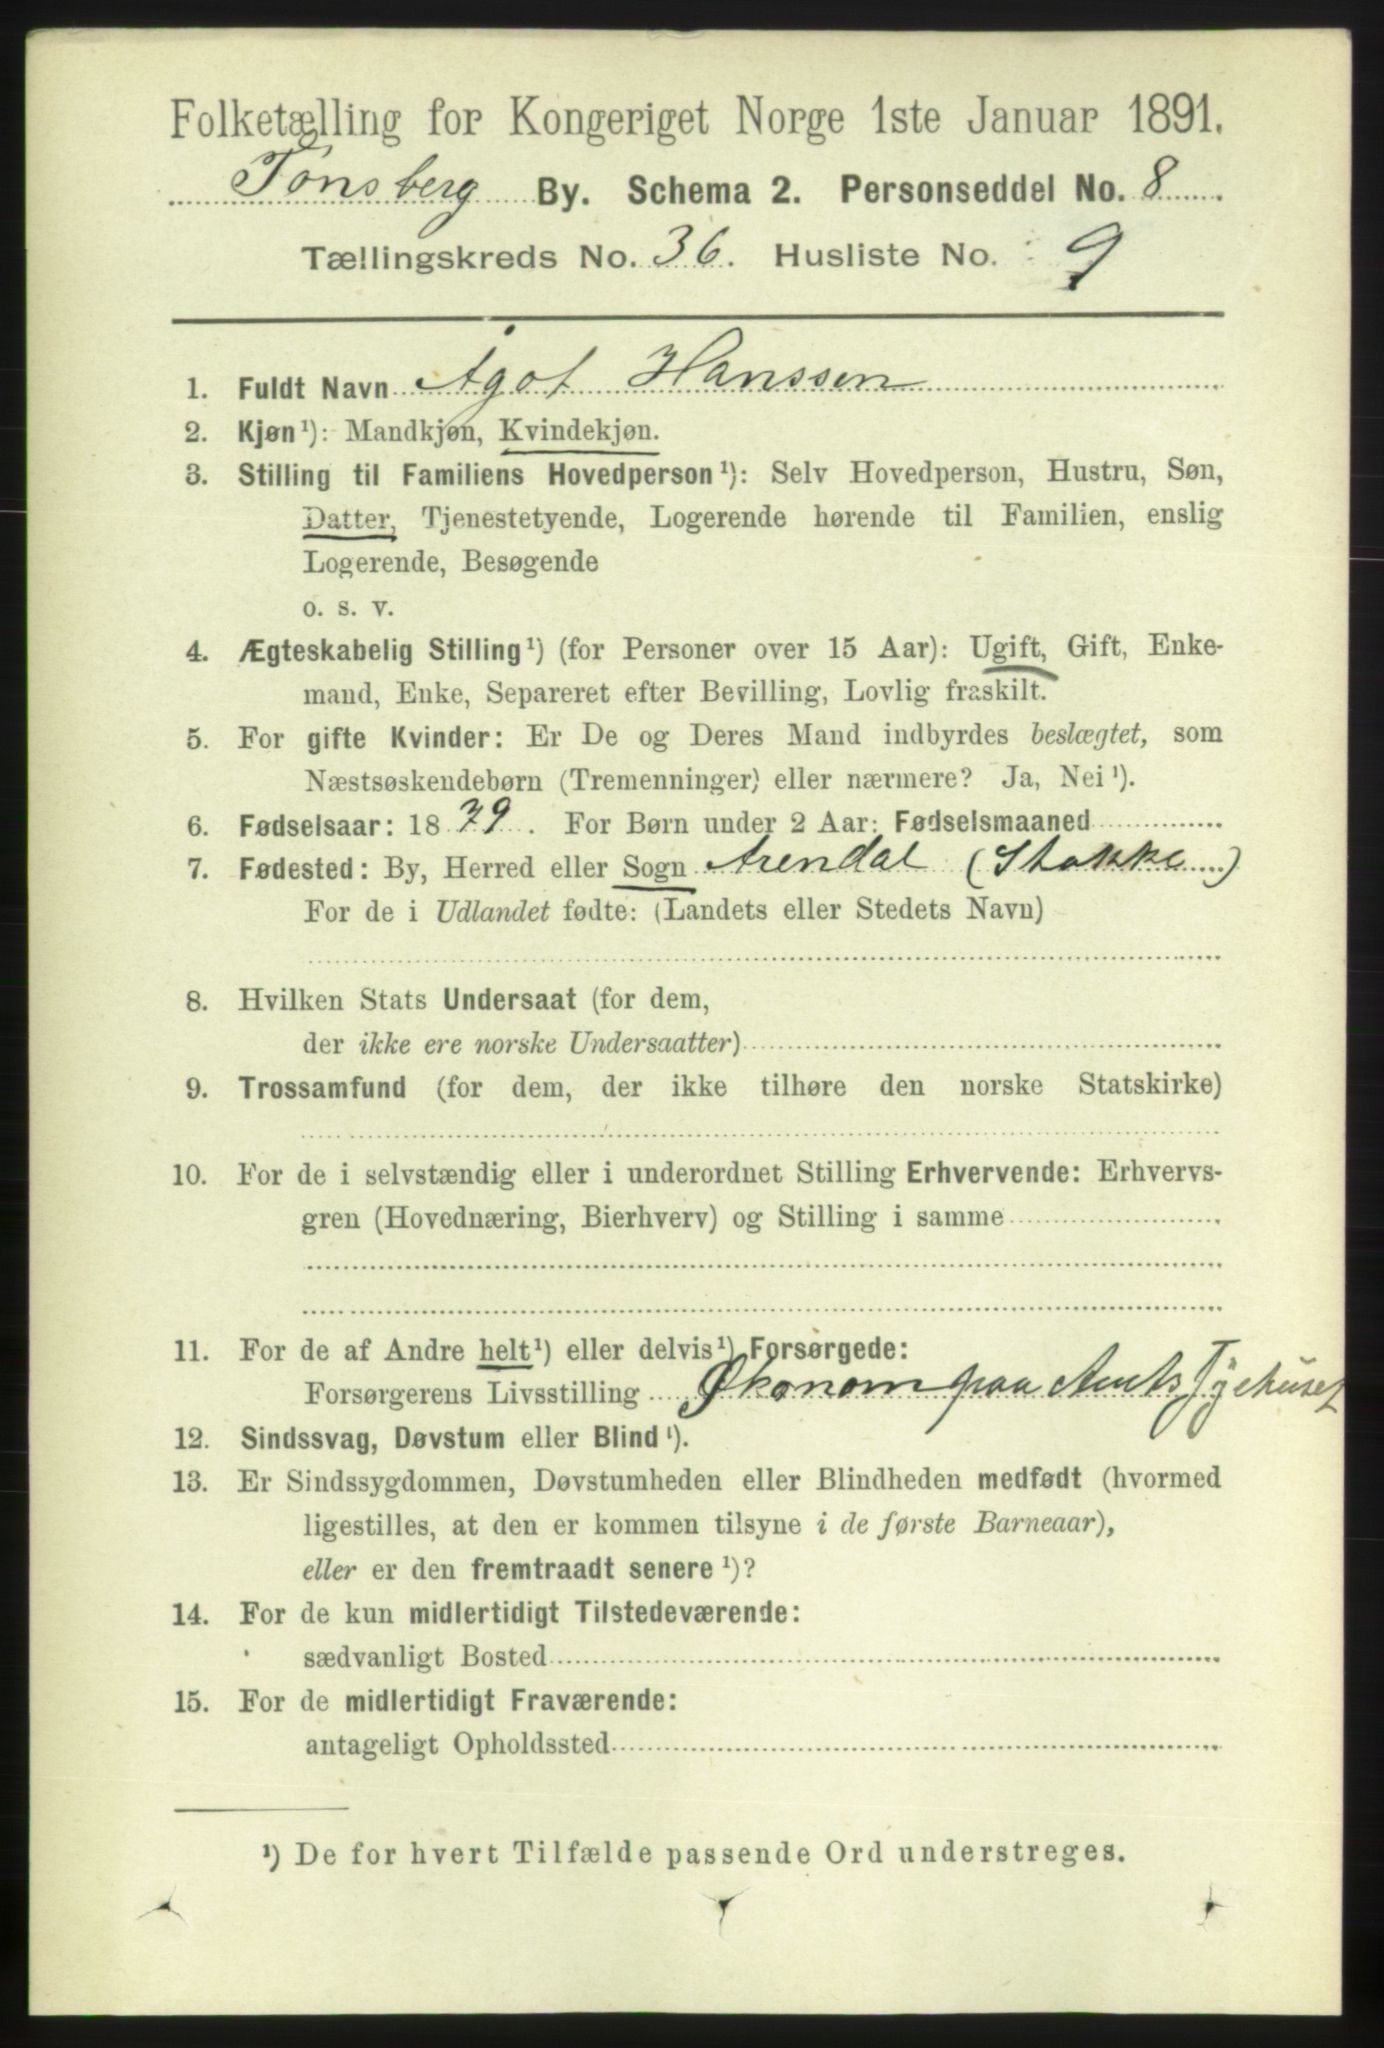 Folketælling for Kongeriget Norge 1ste Januar 1891.
Tønsberg By. Schema 2. Personseddel No. 8
Tællingskreds No. 36. Husliste No. 9
1. Fuldt Navn Ågot Hanssen
2. Kjøn¹): Mandkjøn, Kvindekjøn.
3. Stilling til Familiens Hovedperson¹): Selv Hovedperson, Hustru, Søn,
Datter, Tjenestetyende, Logerende hørende til Familien, enslig
Logerende, Besøgende
o. s. v.
4. Ægteskabelig Stilling¹) (for Personer over 15 Aar): Ugift, Gift, Enke-
mand, Enke, Separeret efter Bevilling, Lovlig fraskilt.
5. For gifte Kvinder: Er De og Deres Mand indbyrdes beslægtet, som
Næstsøskendebørn (Tremenninger) eller nærmere? Ja, Nei¹).
6. Fødselsaar: 1879. For Børn under 2 Aar: Fødselsmaaned
7. Fødested: By, Herred eller Sogn Arendal (Stokke)
For de i Udlandet fødte: (Landets eller Stedets Navn)
8. Hvilken Stats Undersaat (for dem,
der ikke ere norske Undersaatter)
9. Trossamfund (for dem, der ikke tilhøre den norske Statskirke)
10. For de i selvstændig eller i underordnet Stilling Erhvervende: Erhvervs-
gren (Hovednæring, Bierhverv) og Stilling i samme
11. For de af Andre helt¹) eller delvis¹) Forsørgede:
Forsørgerens Livsstilling Økonom paa Amts Sygehuset
12. Sindssvag, Døvstum eller Blind¹).
13. Er Sindssygdommen, Døvstumheden eller Blindheden medfødt (hvormed
ligestilles, at den er kommen tilsyne i de første Barneaar),
eller er den fremtraadt senere¹)?
14. For de kun midlertidigt Tilstedeværende:
sædvanligt Bosted
15. For de midlertidigt Fraværende:
antageligt Opholdssted
¹) De for hvert Tilfælde passende Ord understreges.